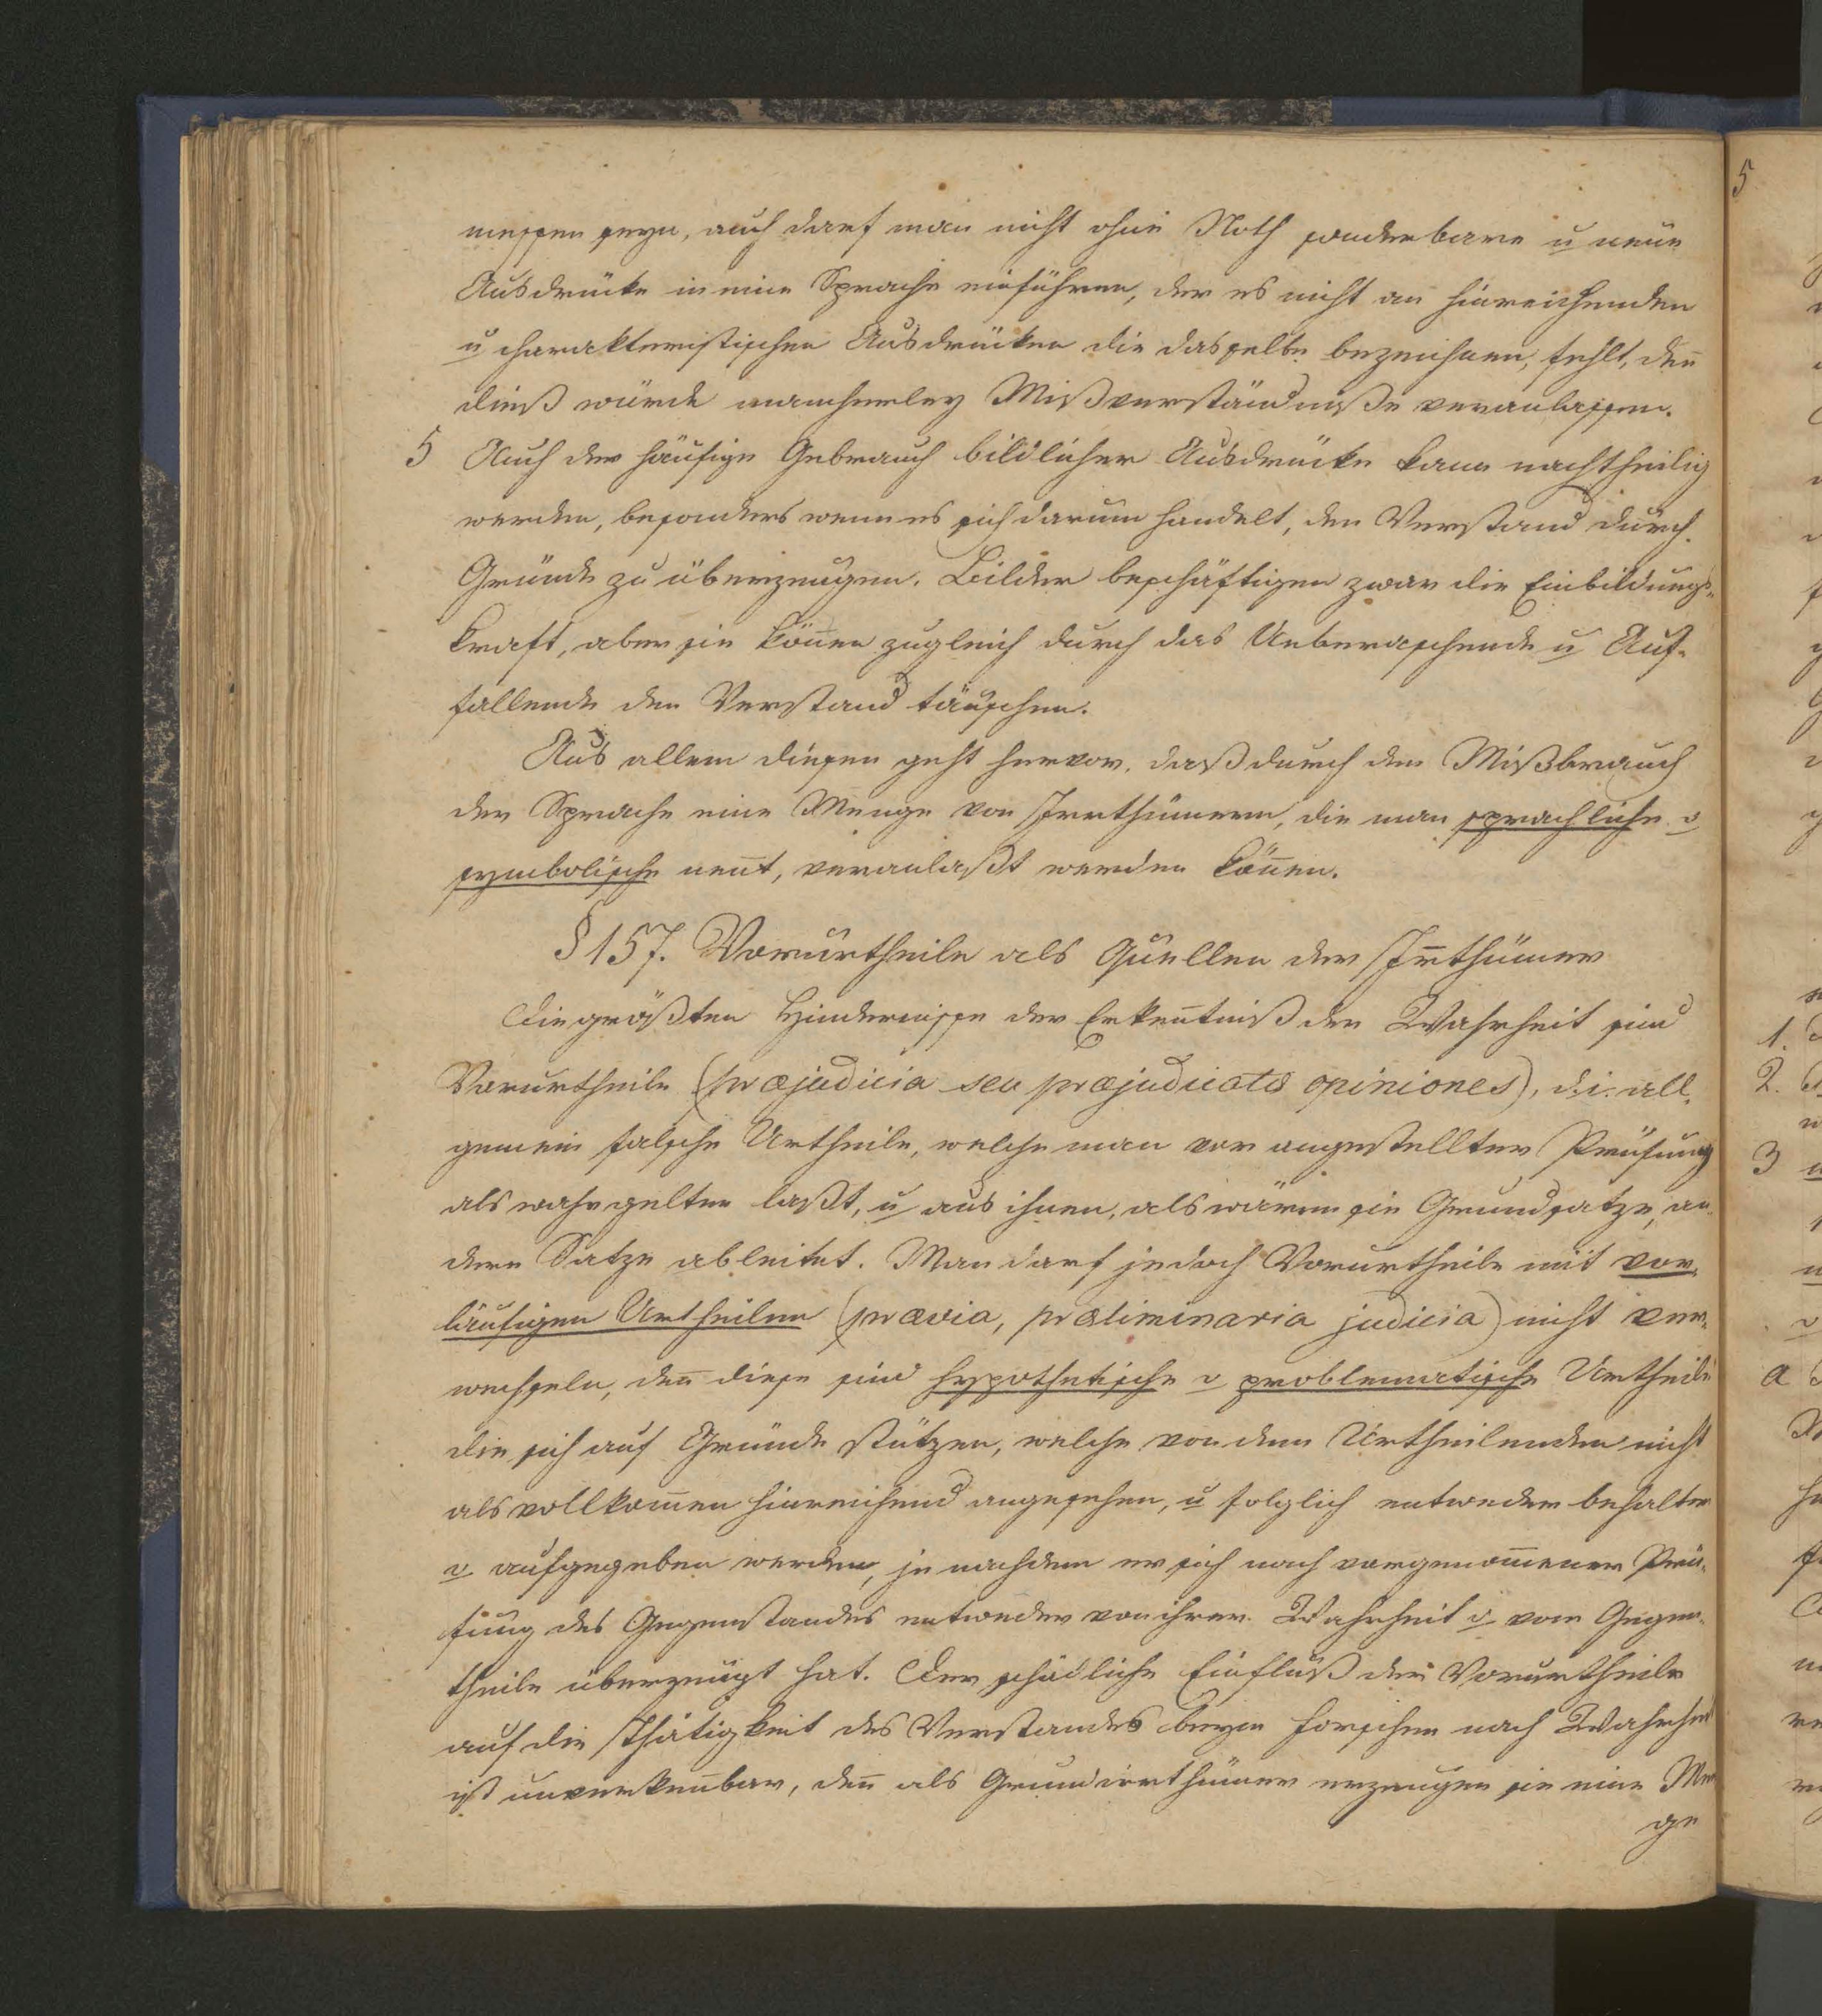 messen seyn, auch darf man nicht ohne Noth sonderbare u neue
Ausdrücke in eine Sprache einführen, der es nicht an hinreichenden
u charakteristischen Ausdrücken die dasselbe bezeichnen, fehlt, den̄
dieß würde mancherley Mißverständniße veranlassen.
5 Auch der häufige Gebrauch bildlicher Ausdrücke kann nachtheilig
werden, besonders wenn es sich darum handelt, den Verstand durch
Gründe zu überzeugen. Bilder beschäftigen zwar die Einbildungs-
kraft, aber sie kön̄en zugleich durch das Ueberaschende u Auf-
fallende den Verstand täuschen.
Aus allem diesen geht hervor, daß durch den Mißbrauch
der Sprache eine Menge von Irrthümern, die man sprachliche o
symbolische nen̄t, veranlaßt werden kön̄en.
§ 157. Vorurtheile als Quellen der Ir̄thümer
Die größten Hindernisse der Erken̄tniß der Wahrheit sind
Vorurtheile (præjudicia seu præjudicatæ opiniones), d. i. all-
gemein falsche Urtheile, welche man vor angestellter Prüfung
als wahr gelten laßt, u aus ihnen, als wären sie Grundsatze, an-
dere Satze ableitet. Man darf jedoch Vorurtheile mit vor-
läufigen Urtheilen (prævia, præliminaria judicia) nicht ver-
wechseln, den̄ diese sind hypothetische o problematische Urtheile
die sich auf Gründe stützen, welche von dem Urtheilenden nicht
als vollkom̄en hinreichend angesehen, u folglich entweder behalten
o aufgegeben werden, je nachdem er sich nach vorgenom̄ener Prü-
fung des Gegenstandes entweder von ihrer Wahrheit o vom Gegen-
theile überzeugt hat. Der schädliche Einfluß der Vorurtheile
auf die Thätigkeit des Verstandes beym Forschen nach Wahrheit
ist unverken̄bar, den̄ als Grundirrthümer erzeugen sie eine Men
ge
5
1.
2.
3
a